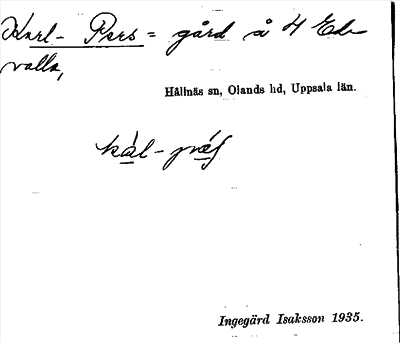 Karl-Pers = gård å 4 Ed-
valla,
Hållnäs sn, Olands hd, Uppsala län.
Ingegärd Isaksson 1935.